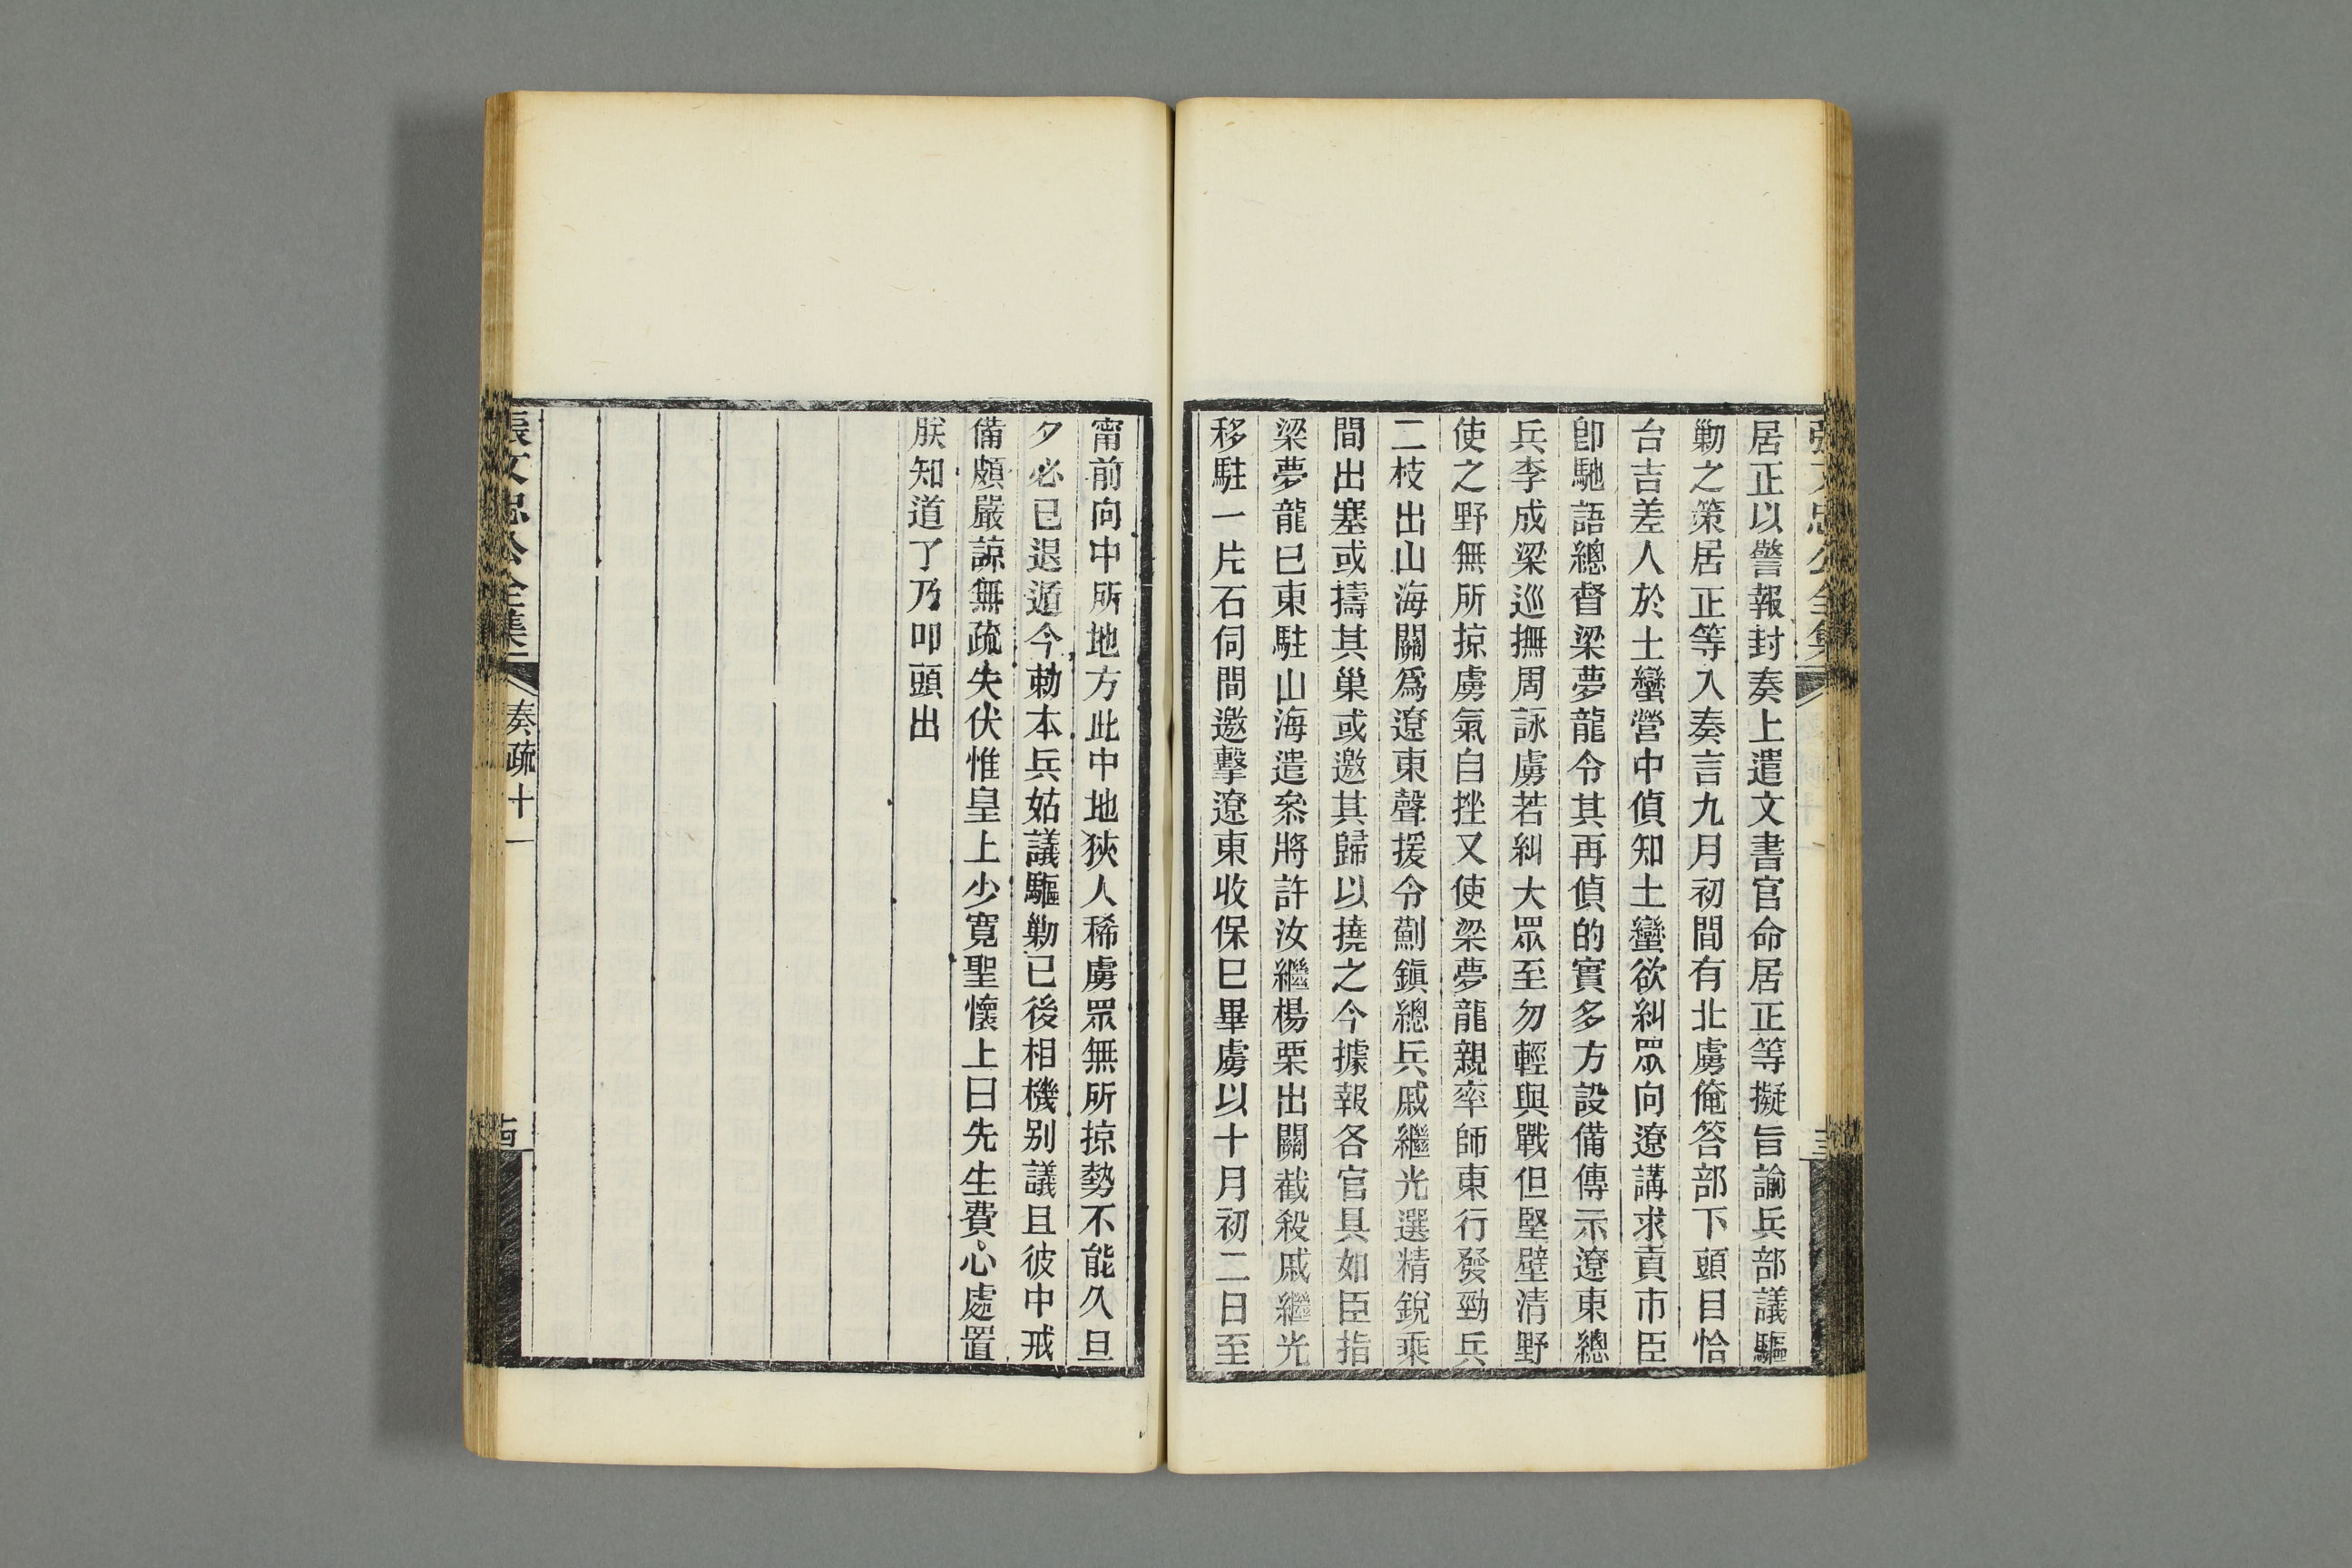 張文忠公全集
居正以警報封奏上遣文書官命居正等擬旨諭兵部議驅
勦之策居正等入奏言九月初間有北虜俺答部下頭目恰
台吉差人於土蠻營中偵知土蠻欲糾眾向遼講求貢市臣
卽馳語總督梁夢龍令其再偵的實多方設備傳示遼東總
兵李成梁巡撫周詠虜若糾大眾至勿輕與戰但堅壁清野
使之野無所掠虜氣自挫又使梁夢龍親率師東行發勁兵
二枝出山海關爲遼東聲援令薊鎮總兵戚繼光選精銳乘
間出塞或擣其巢或邀其歸以撓之今據報各官具如臣指
梁夢龍已東駐山海遣叅將許汝繼楊栗出關截殺戚繼光
移駐一片石伺間邀擊遼東收保已畢虜以十月初二日至
甯前向中所地方此中地狹人稀虜眾無所掠勢不能久旦
夕必已退遁今勅本兵姑議驅勦已後相機别議且彼中戒
備頗嚴諒無疏失伏惟皇上少寬聖懷上曰先生費心處置
朕知道了乃叩頭出
張文忠公全集
奏疏十一
十四